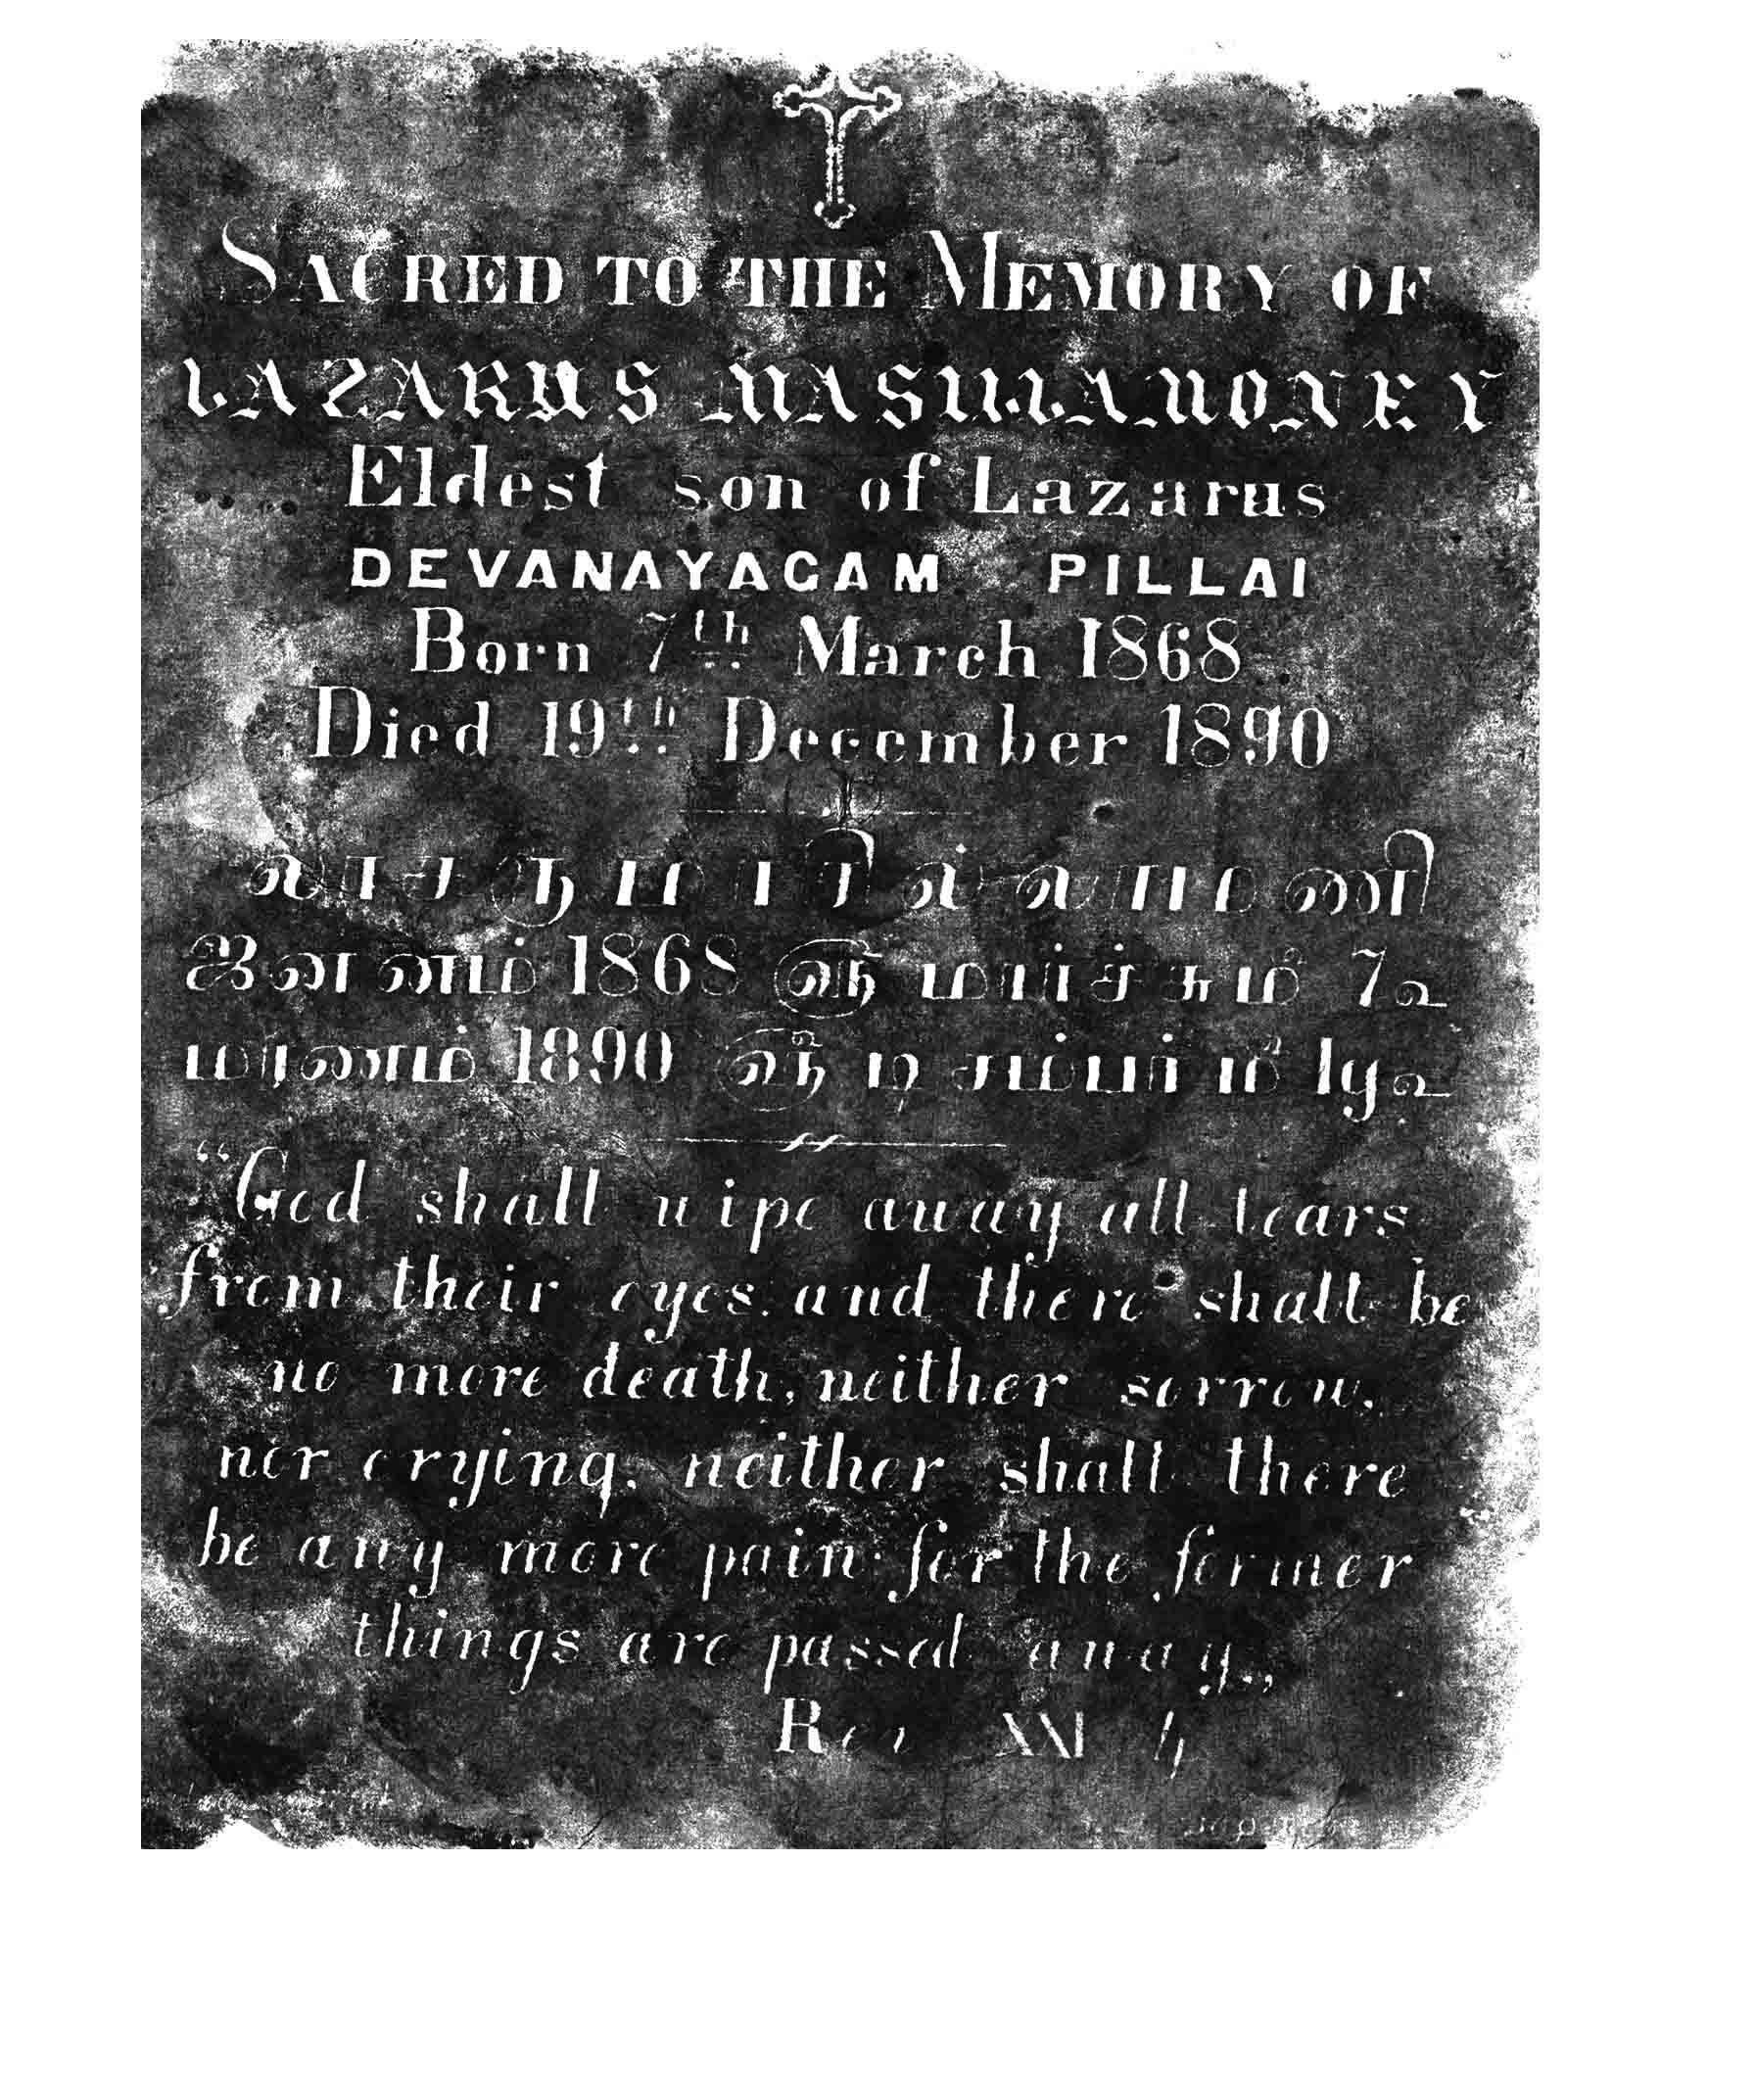 SACRED TO THE MEMORY OF
LAZARUS MASILLAMONEY
Eldest son of Lazarus
DEVANAYAGAM PILLAI
Born 7th March 1868
Died 19th December 1890
லாசரு மாசில்லாமணி
ஜனனம் 1868 ௵ மார்ச்சு௴ 7உ
மரணம் 1890 ௵ டிசம்பர்௴ 19உ
“God shall wipe away all tears
from their eyes: and there shall be
no more death, neither sorrow,
nor crying, neither shall there
be any more pain: for the former
things are passed away.„
Rev XXI 4